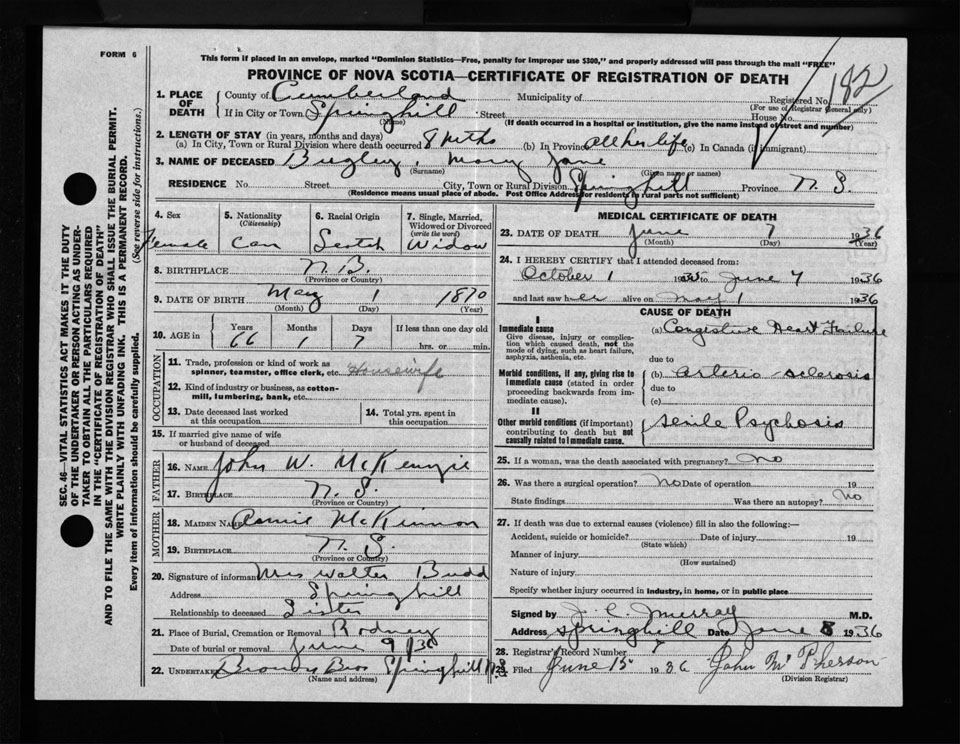 FORM 6
This form if placed in an envelope, marked "Dominion Statistics—Free, penalty for improper use $300," and properly addressed will pass through the mail "FREE"
PROVINCE OF NOVA SCOTIA—CERTIFICATE OF REGISTRATION OF DEATH
SEC. 46—VITAL STATISTICS ACT MAKES IT THE DUTY
OF THE UNDERTAKER OR PERSON ACTING AS UNDER-
TAKER TO OBTAIN ALL THE PARTICULARS REQUIRED
IN THE "CERTIFICATE OF REGISTRATION OF DEATH"
AND TO FILE THE SAME WITH THE DIVISION REGISTRAR WHO SHALL ISSUE THE BURIAL PERMIT.
WRITE PLAINLY WITH UNFADING INK. THIS IS A PERMANENT RECORD.
Every item of information should be carefully supplied. (See reverse side for instructions.)
1. PLACE OF DEATH County of Cumberland Municipality of Registered No. 182
(For use of Registrar General only)
If in City or Town Springhill Street House No.
(Name) (If death occurred in a hospital or institution, give the name instead of street and number)
2. LENGTH OF STAY (in years, months and days)
(a) In City, Town or Rural Division where death occurred 8 mths (b) In Province all her life (c) In Canada (if immigrant)
3. NAME OF DECEASED Mary Jane
(Surname) (Given name or names)
RESIDENCE No. Street City, Town or Rural Division Springhill Province N.S.
(Residence means usual place of abode. Post Office Address for residents in rural parts not sufficient)
4. Sex Female
5. Nationality (Citizenship) Can
6. Racial Origin Scotch
7. Single, Married, Widowed or Divorced (write the word) Widow
8. BIRTHPLACE N.B.
(Province or Country)
9. DATE OF BIRTH May 1 1870
(Month) (Day) (Year)
10. AGE in Years 66 Months 1 Days 7 If less than one day old hrs. or min.
OCCUPATION
11. Trade, profession or kind of work as spinner, teamster, office clerk, etc. Housewife
12. Kind of industry or business, as cotton-mill, lumbering, bank, etc.
13. Date deceased last worked at this occupation
14. Total yrs. spent in this occupation
15. If married give name of wife or husband of deceased
FATHER
16. NAME John W. McKenzie
17. BIRTHPLACE N.S.
(Province or Country)
MOTHER
18. MAIDEN NAME McKinnon
19. BIRTHPLACE N.S.
(Province or Country)
20. Signature of informant Mrs Walter Budd
Address Springhill
Relationship to deceased Sister
21. Place of Burial, Cremation or Removal Rodney
Date of burial or removal June 9/36
22. UNDERTAKER Bros Springhill N.S.
(Name and address)
MEDICAL CERTIFICATE OF DEATH
23. DATE OF DEATH June 7 1936
(Month) (Day) (Year)
24. I HEREBY CERTIFY that I attended deceased from:
October 1 1935 to June 7 1936
and last saw her alive on May 1 1936
CAUSE OF DEATH
I
Immediate cause (a) Congestive Heart Failure
Give disease, injury or complication which caused death, not the mode of dying, such as heart failure, asphyxia, asthenia, etc.
due to
Morbid conditions, if any, giving rise to immediate cause (stated in order proceeding backwards from immediate cause). (b) Arterio-sclerosis
due to
(c)
II
Other morbid conditions (if important) contributing to death but not causally related to immediate cause. Senile Psychosis
25. If a woman, was the death associated with pregnancy? No
26. Was there a surgical operation? No Date of operation 19
State findings Was there an autopsy? No
27. If death was due to external causes (violence) fill in also the following:—
Accident, suicide or homicide? Date of injury 19
(State which)
Manner of injury
(How sustained)
Nature of injury
Specify whether injury occurred in industry, in home, or in public place
Signed by J. C. Murray M.D.
Address Springhill Date June 8 1936
28. Registrar's Record Number
29. Filed June 15 1936 John McPherson
(Division Registrar)